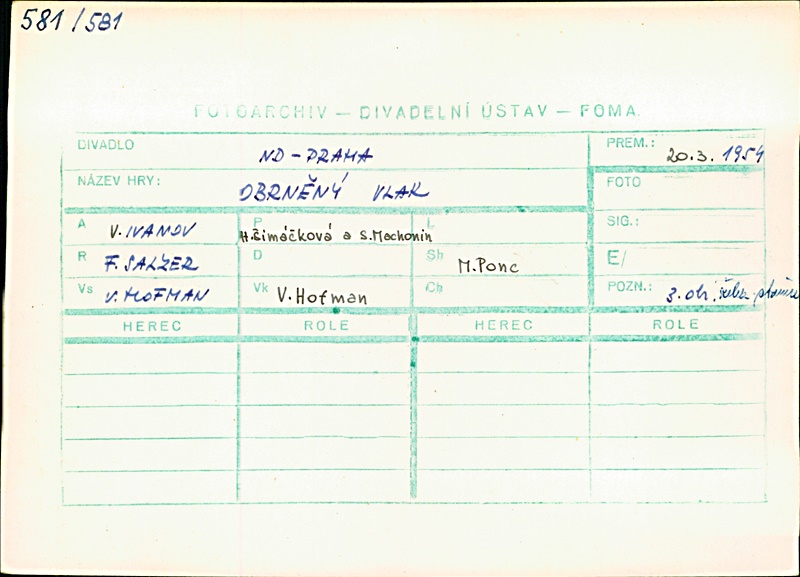 581/581
FOTOARCHIV — DIVADELNÍ ÚSTAV — FOMA
DIVADLO ND - PRAHA
PREM.: 20.3. 1954
NÁZEV HRY: OBRNĚNÝ VLAK
FOTO
A V. IVANOV
P H. Šimáčková a S. Machonin
L
SIG.:
R F. SALZER
D
Sh M. Ponc
E/
Vs V. HOFMAN
Vk V. Hofman
Ch
POZN.: 3. ob.
HEREC ROLE HEREC ROLE